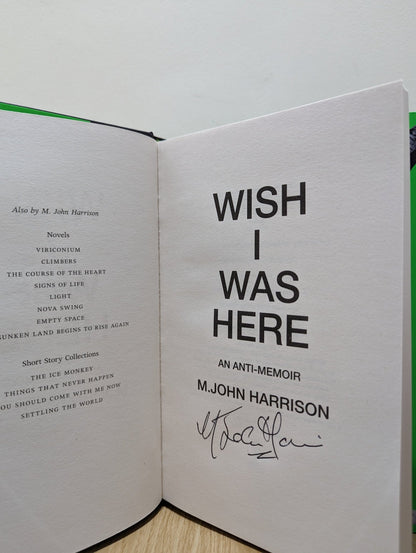 Also by M. John Harrison
Novels
VIRICONIUM
CLIMBERS
THE COURSE OF THE HEART
SIGNS OF LIFE
LIGHT
NOVA SWING
EMPTY SPACE
SUNKEN LAND BEGINS TO RISE AGAIN
Short Story Collections
THE ICE MONKEY
THINGS THAT NEVER HAPPEN
YOU SHOULD COME WITH ME NOW
SETTLING THE WORLD
WISH
I
WAS
HERE
AN ANTI-MEMOIR
M.JOHN HARRISON
M John Harrison